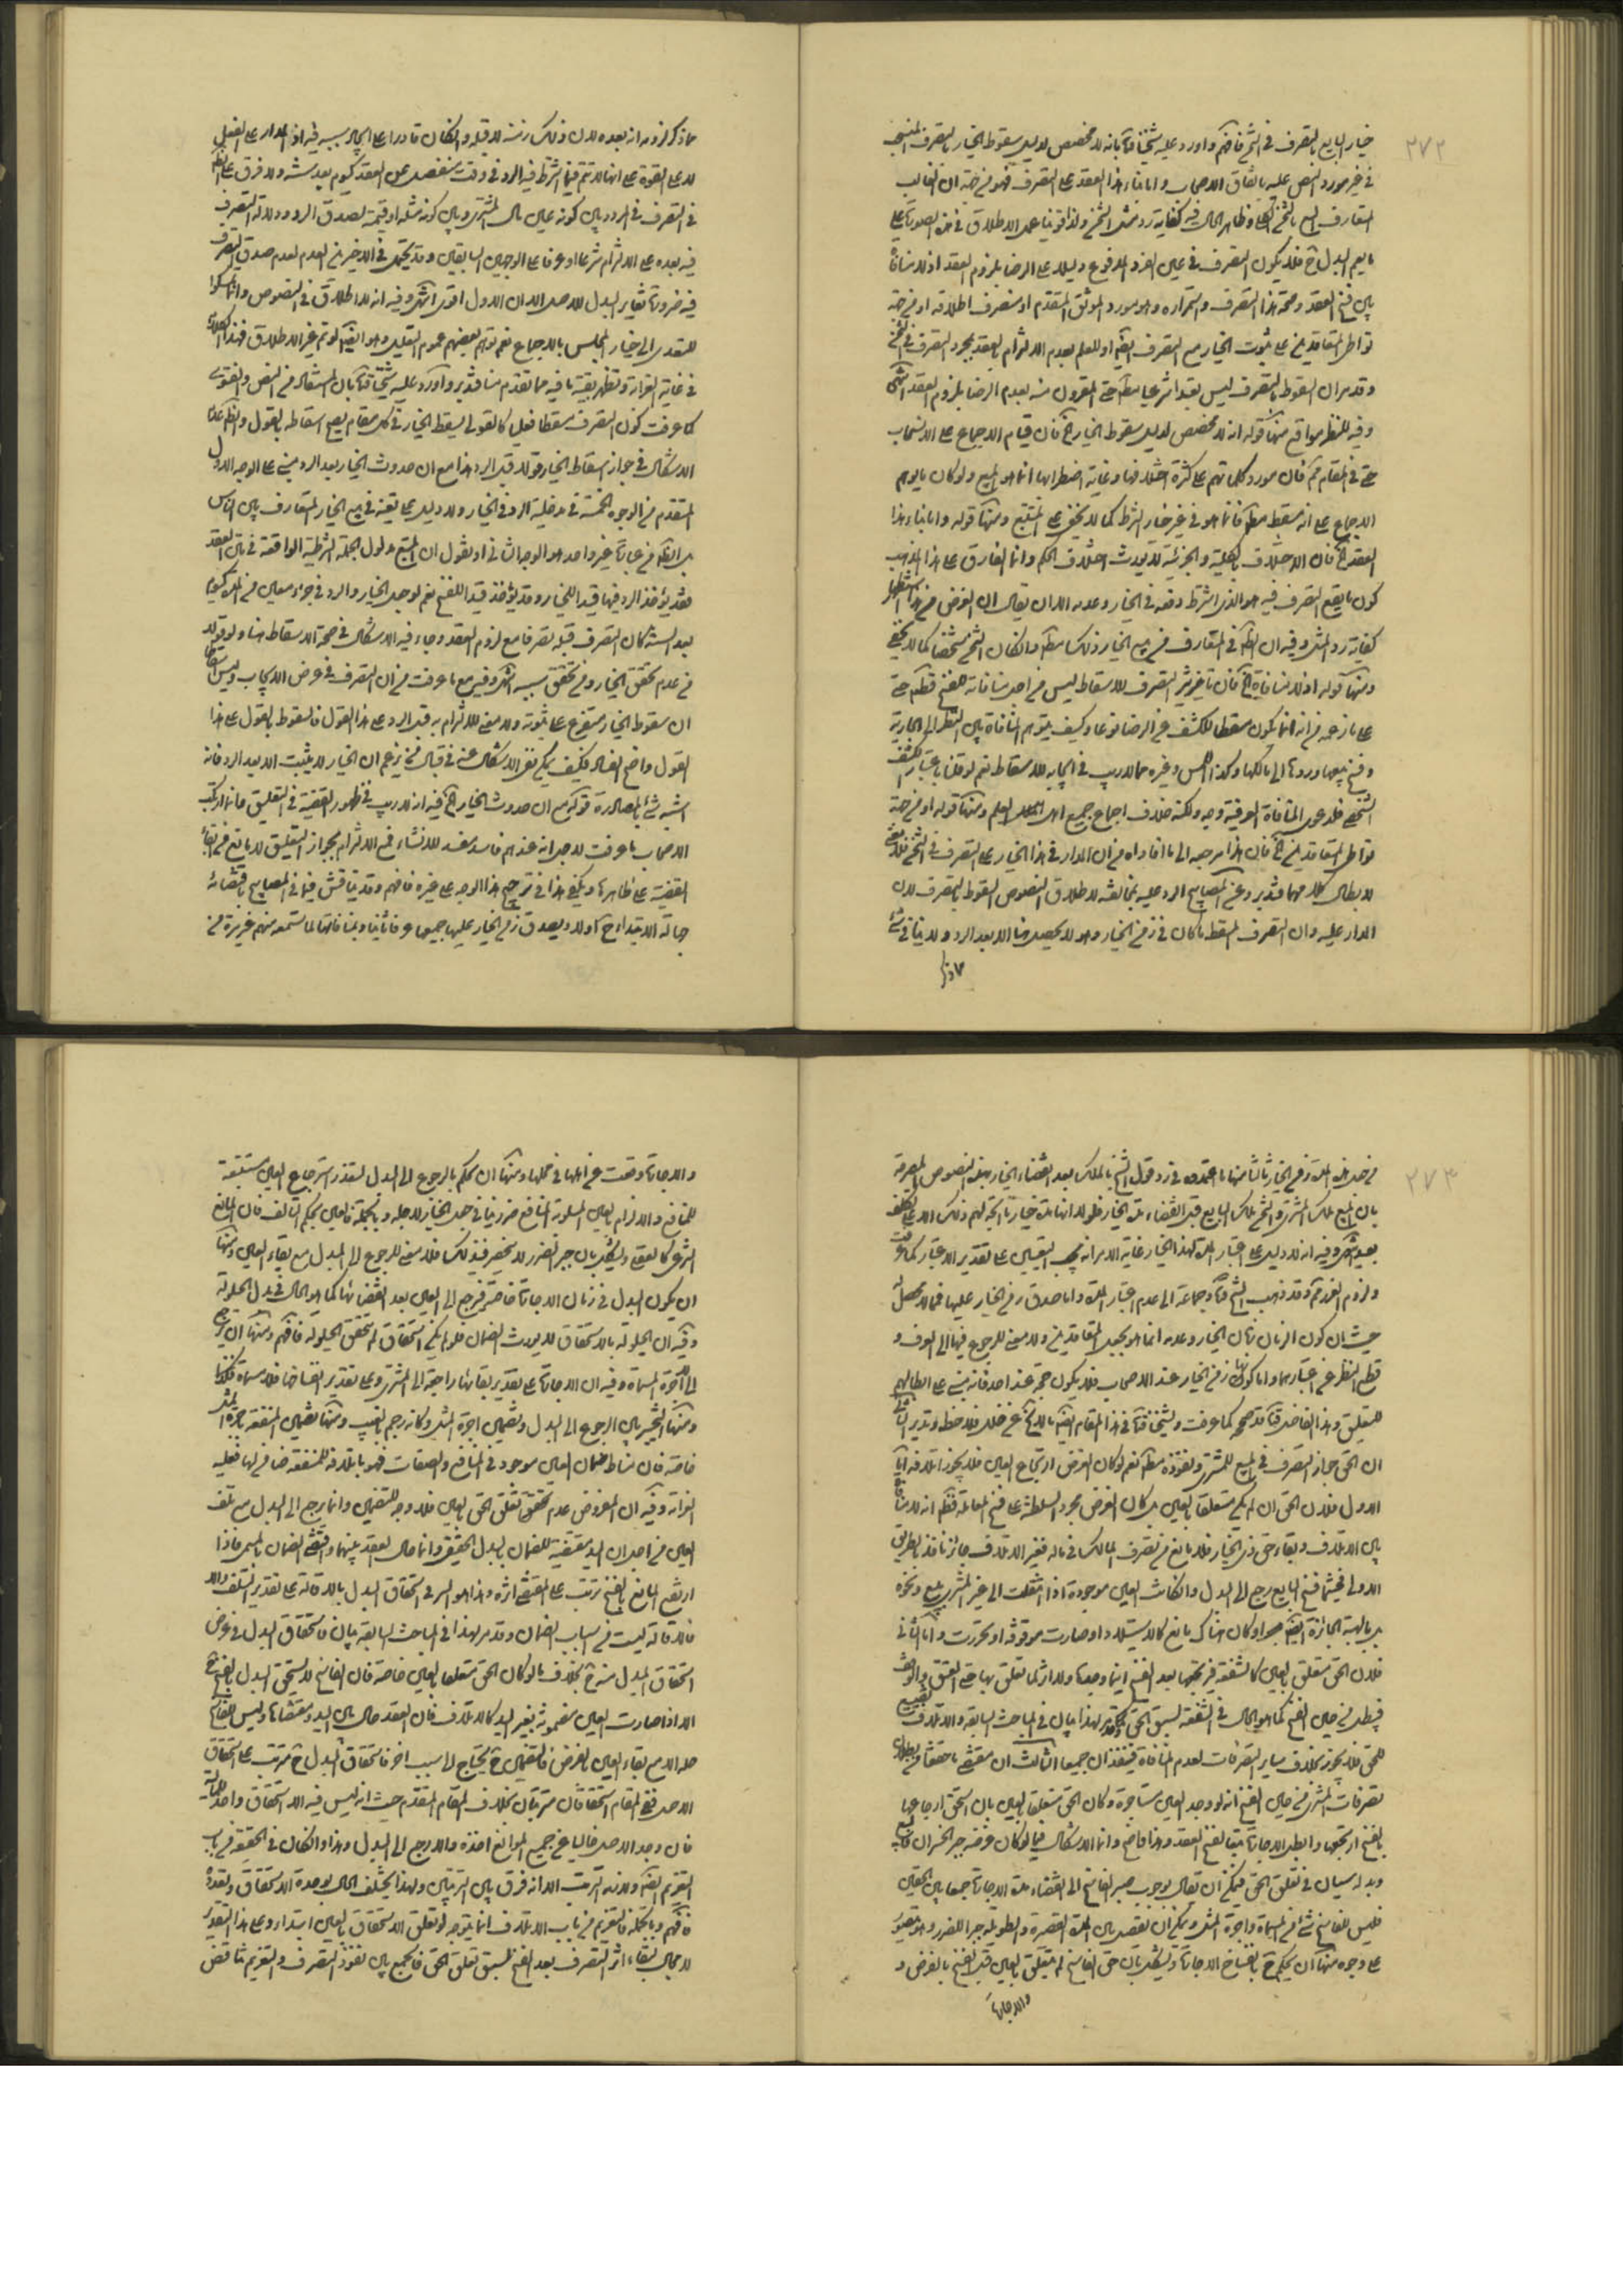 ٢٧٢
خيار البايع بالتصرف في الثمن فافهم واورد عليه شيخنا بانه لا مخصص لدليل سقوط الخيار بالتصرف
في غير مورد النص عليه باتفاق الاصحاب واما بناء هذا العقد على التصرف فهو من جهة ان الغالب
المتعارف البيع بالثمن الكلي وظاهر الحال فيه كفاية رد مثل الثمن ولذا قوينا حمل الاطلاق في هذه الصورة على
ما يعم البدل وح فلا يكون التصرف في عين الفرد المدفوع دليلا على الرضا بلزوم العقد اذ لا منافاة
بين فسخ العقد وصحة هذا التصرف واستمراره وهو مورد الموثق المتقدم او منصرف اطلاقه او من جهة
تواطى المتعاقدين على ثبوت الخيار مع التصرف ايضا او للعلم بعدم الالتزام بالعقد بمجرد التصرف في الثمن
وقد مر ان السقوط بالتصرف ليس تعبدا شرعيا مطلقا حتى المقرون منه بعدم الرضا بلزوم العقد انتهى
وفيه للنظر مواقع منها قوله انه لا مخصص لدليل سقوط الخيار فان قيام الاجماع على الانسحاب
حتى في المقام فان مورد كلماتهم على كثرة اختلافها وغاية اضطرابها انما هو المبيع ولو كان ما يوهم
الاجماع على انه مسقط مطلقا فانما هو في غير خيار الشرط كما لا يخفى على المتتبع ومنها قوله واما بناء هذا
العقد فان الاختلاف بالكلية والجزئية لا يورث اختلاف الحكم وانما الفارق على هذا المذهب
كون ما يقع التصرف فيه هو الذي اشترط دفعه في الخيار وعدمه الا ان يقال ان الغرض من هذا استظهار
كفاية رد المثل وفيه ان الظاهر في المتعارف من بيع الخيار ذلك مطلقا وان كان الثمن شخصيا كما لا يخفى
ومنها قوله اذ لا منافاة فان تأثير التصرف للاسقاط ليس من اجل منافاته للفسخ قطعا حتى
على ما زعمه من انه انما يكون مسقطا للكشف عن الرضا نوعا وكيف يتوهم المنافاة بين النظر الى الجارية
وفسخ بيعها وردها الى مالكها وكذا اللمس وغيره مما لا ريب في ايجابه للاسقاط نعم لو قلنا باعتبار الكشف
الشخصي فدعوى المنافاة العرفية وجيه ولكنه خلاف اجماع جميع اهل العلم ومنها قوله او من جهة
تواطى المتعاقدين فان هذا مرجعه الى ما افاده من ان المدار في هذا الخيار على التصرف في الثمن فلا معنى
لابطال كلامهما فتدبر وعن المصابيح الرد عليه بمخالفته لاطلاق النصوص السقوط بالتصرف لان
المدار عليه وان التصرف المسقط ما كان في زمن الخيار وهو لا يحصل هنا الا بعد الرد ولا ينافي شئ
مما ذكر لزومه انه بعده لان ذلك زمنه لا قبله وان كان قادرا على ايجاد سببه فيه اذ المدار على الفعل
لا على القوة على انها لا تتم فيما اشترط فيه الرد في وقت منفصل عن العقد كيوم بعد سنة ولا فرق على الظاهر
في التصرف في المردود بين كونه عين مال المشتري وبين كونه مثله او قيمته لصدق الرد ودلالة التصرف
فيه بعده على الالتزام شرعا او عرفا على الوجهين السابقين وقد يحتمل في الاخيرين العدم لعدم صدق التصرف
فيه ضرورة تغاير البدل للاصل الا ان الاول اقوى انتهى وفيه انه لا اطلاق في النصوص وانما تمسكوا
للتعدي الى خيار المجلس بالاجماع نعم توهم بعضهم عموم التعليل وهو ايضا لو تم غير الاطلاق فهذا الكلام
في غاية الغرابة وتظهر بقية ما فيه مما تقدم منا فتدبر وأورد عليه شيخنا بان المستفاد من النص والفتوى
كما عرفت كون التصرف مسقطا فعليا كالقولي يسقط الخيار في كل مقام يصح اسقاطه بالقول والظاهر عدم
الاشكال في جواز اسقاط الخيار قولا قبل الرد هذا مع ان حدوث الخيار بعد الرد مبني على الوجه الاول
المتقدم من الوجوه الخمسة في مدخلية الرد في الخيار ولا دليل على تعينه في بيع الخيار المتعارف بين الناس
بل الظاهر من عبارة غير واحد هو الوجه الثاني او نقول ان المتبع مدلول الجملة الشرطية الواقعة في متن العقد
فقد يؤخذ الرد فيها قيدا للخيار وقد يؤخذ قيدا للفسخ نعم لو جعل الخيار والرد في جزء معين من المدة كيوم
بعد السنة كان التصرف قبله تصرفا مع لزوم العقد وجاء فيه الاشكال في صحة الاسقاط هنا ولو قولا
من عدم تحقق الخيار ومن تحقق سببه انتهى وفيه مع ما عرفت من ان التصرف في عرض الايجاب وليس اسقاطا
ان سقوط الخيار متفرع على ثبوته ولا معنى للالتزام به قبل الرد على هذا القول فالسقوط بالقول على هذا
القول واضح الفساد فكيف يمكن نفي الاشكال عنه في قبال من يزعم ان الخيار لا يثبت الا بعد الرد فانه
اشبه شئ بالمصادرة قوله مع ان حدوث الخيار فيه انه لا ريب في ظهور القضية في التعليق فانما ارتكب
الاصحاب ما عرفت لاجل انه عندهم فاسد مفسد للانشاء فمع الالتزام بجواز التعليق لا مانع من ابقاء
القضية على ظاهرها ويكفي هذا في ترجيح هذا الوجه على غيره فافهم وقد يناقش فيما في المصابيح باقتضائه
جهالة الابتداء ح اولا وبصدق زمن الخيار عليها جميعها عرفا ثانيا وبمنافاتها لما ستسمعه منهم غير مرة من
وذ
٢٧٣
من هذه المدة زمن الخيار ثالثا منها ما اعتمدوه في رد قول الشيخ بالملك بعد انقضاء الخيار ببعض النصوص المصرحة
بان المبيع ملك المشتري والثمن ملك البايع قبل انقضاء مدة الخيار فلولا انها مدة خيار لم يتجه لهم ذلك الا على تكلف
بعيد انتهى وفيه انه لا دليل على اعتبار المدة لهذا الخيار غاية الامر انه يجب التعيين على تقدير الاعتبار كما عرفت
ولزوم الغرر وقد ذهب الشيخ وجماعة الى عدم اعتبار المدة واما صدق زمن الخيار عليها فمما لا محصل له
حيث ان كون الزمان زمان الخيار وعدمه انما هو بجعل المتعاقدين ولا معنى للرجوع فيها الى العرف و
قطع النظر عن اعتبارهما واما كونها زمن الخيار عند الاصحاب فلا يكون حجة عند احد فانه مبني على ابطالهم
للتعليق وهذا الفاضل لا يصححه كما عرفت ولشيخنا في هذا المقام ايضا ما لا يخ عن خلل فلاحظ وتدبر الثاني
ان الحق جواز التصرف في المبيع للمشتري ونفوذه مطلقا نعم لو كان الغرض ارتجاع العين فلا يجوز اتلافه اما
الاول فلان الحق ان لم يكن متعلقا بالعين بل كان الغرض مجرد السلطنة على فسخ المعاملة فظاهر انه لا منافاة
بين الاتلاف وبقاء حق ذي الخيار فلا مانع من تصرف المالك في ماله فغير الاتلاف جائز نافذ بالطريق
الاولى فحيثما فسخ البايع يرجع الى البدل وان كانت العين موجودة اذا انتقلت الى غير المشتري ببيع ونحوه
بل بالهبة الجائزة ايضا سواء كان هناك مانع كالاستيلاد او صارت موقوفة او تحررت واما الثاني
فلان الحق متعلق بالعين كالشفعة فيرتجعها بعد الفسخ اينما وجدها ولا اثر لما تعلق بها حتى العتق والوقف
فيبطل من حين الفسخ كما هو الحال في الشفعة لسبق الحق وقد مر لهذا بيان في المباحث السابقة والاتلاف تضييع
للحق فلا يجوز بخلاف ساير التصرفات لعدم المنافاة فينفذان جميعا الثالث ان مقتضى ما حققناه من بطلان
تصرفات المشتري من حين الفسخ انه لو وجد العين مستاجرة وكان الحق متعلقا بالعين بان استحق ارجاعها
بالفسخ ارتجعها وابطل الاجارة تبعا لفسخ العقد وهذا واضح وانما الاشكال فيما لو كان غرضه جبر الخسران
وبدله سيان في تعلق الحق فيمكن ان يقال بوجوب صبر الفاسخ الى انقضاء مدة الاجارة جمعا بين الحقين
فليس للفاسخ شئ من المسماة واجرة المثل ويمكن ان يفصل بين المدة القصيرة والطويلة جبرا للضرر وهو يتصور
على وجوه منها ان يحكم ح بانفساخ الاجارة ويشكل بان حق الفاسخ لم يتعلق بالعين قبل الفسخ بالفرض و
والاجارة
والاجارة وقعت من اهلها في محلها ومنها ان يحكم بالرجوع الى البدل لتعذر استرجاع العين مستتبعة
للمنافع والالزام بالعين المسلوبة المنافع ضرر نافى جعل الخيار لاجله وبالجملة فالعين بحكم التالف فان المانع
الشرعي كالعقلي ويشكل بان جبر الضرر لا ينحصر في ذلك فلا معنى للرجوع الى البدل مع بقاء العين ومنها
ان يكون البدل في زمان الاجارة خاصة فيرجع الى العين بعد انقضائها كما هو الحال في بدل الحيلولة
وفيه ان الحيلولة بالاستحقاق لا يورث الضمان فلو لم يكن استحقاق لم يتحقق الحيلولة فافهم ومنها ان يرجع
الى الاجرة المسماة وفيه ان الاجارة على تقدير بقائها راجعة الى المشتري وعلى تقدير انفساخها فلا مسماة
ومنها التخيير بين الرجوع الى البدل وتضمين اجرة المثل وكانه رجم بالغيب ومنها تضمين المنفعة باجرة المثل
خاصة فان مناط ضمان العين موجود في المنافع والصفات فهو باتلافه للمنفعة ضامن لها فعليه
الغرامة وفيه ان المفروض عدم تحقق تعلق الحق بالعين فلا وجه للتضمين وانما يرجع الى البدل مع تلف
العين من اجل ان اليد مقتضية للضمان بالبدل الحقيقي وانما حال العقد بينهما واقتضى الضمان بالمسمى فاذا
ارتفع المانع بالفسخ ترتب على المقتضى اثره وهذا هو السر في استحقاق البدل بالاقالة على تقدير التلف والا
فالاقالة ليست من اسباب الضمان وقد مر لهذا في المباحث السابقة بيان فاستحقاق البدل في عرض
استحقاق المبدل منه ح بخلاف ما لو كان الحق متعلقا بالعين خاصة فان الفاسخ لا يستحق البدل بالفسخ
الا اذا صارت العين مضمونة بغير اليد كالاتلاف فان العقد حال بين اليد ومقتضاها وليس الفسخ
حلا الا مع بقاء العين بالفرض فالتضمين ح يحتاج الى سبب اخر فاستحقاق البدل ح مرتب على استحقاق
الاصل ففي المقام استحقاقان مرتبان بخلاف المقام المتقدم حيث انه ليس فيه الا استحقاق واحد للمالية
فان وجد الاصل خاليا عن جميع الموانع اخذه والا رجع الى البدل وهذا وان كان في الحقيقة من باب
التغريم ايضا ولازمه الترتب الا انه فرق بين الترتبين ولهذا يختلف الحال بوحدة الاستحقاق وتعدده
فافهم وبالجملة فالتغريم من باب الاتلاف انما يتوجه لو تعلق الاستحقاق بالعين ابتداء وعلى هذا التقدير
لا مجال لبقاء اثر التصرف بعد الفسخ لسبق تعلق الحق فالجمع بين نفوذ التصرف والتغريم تناقض